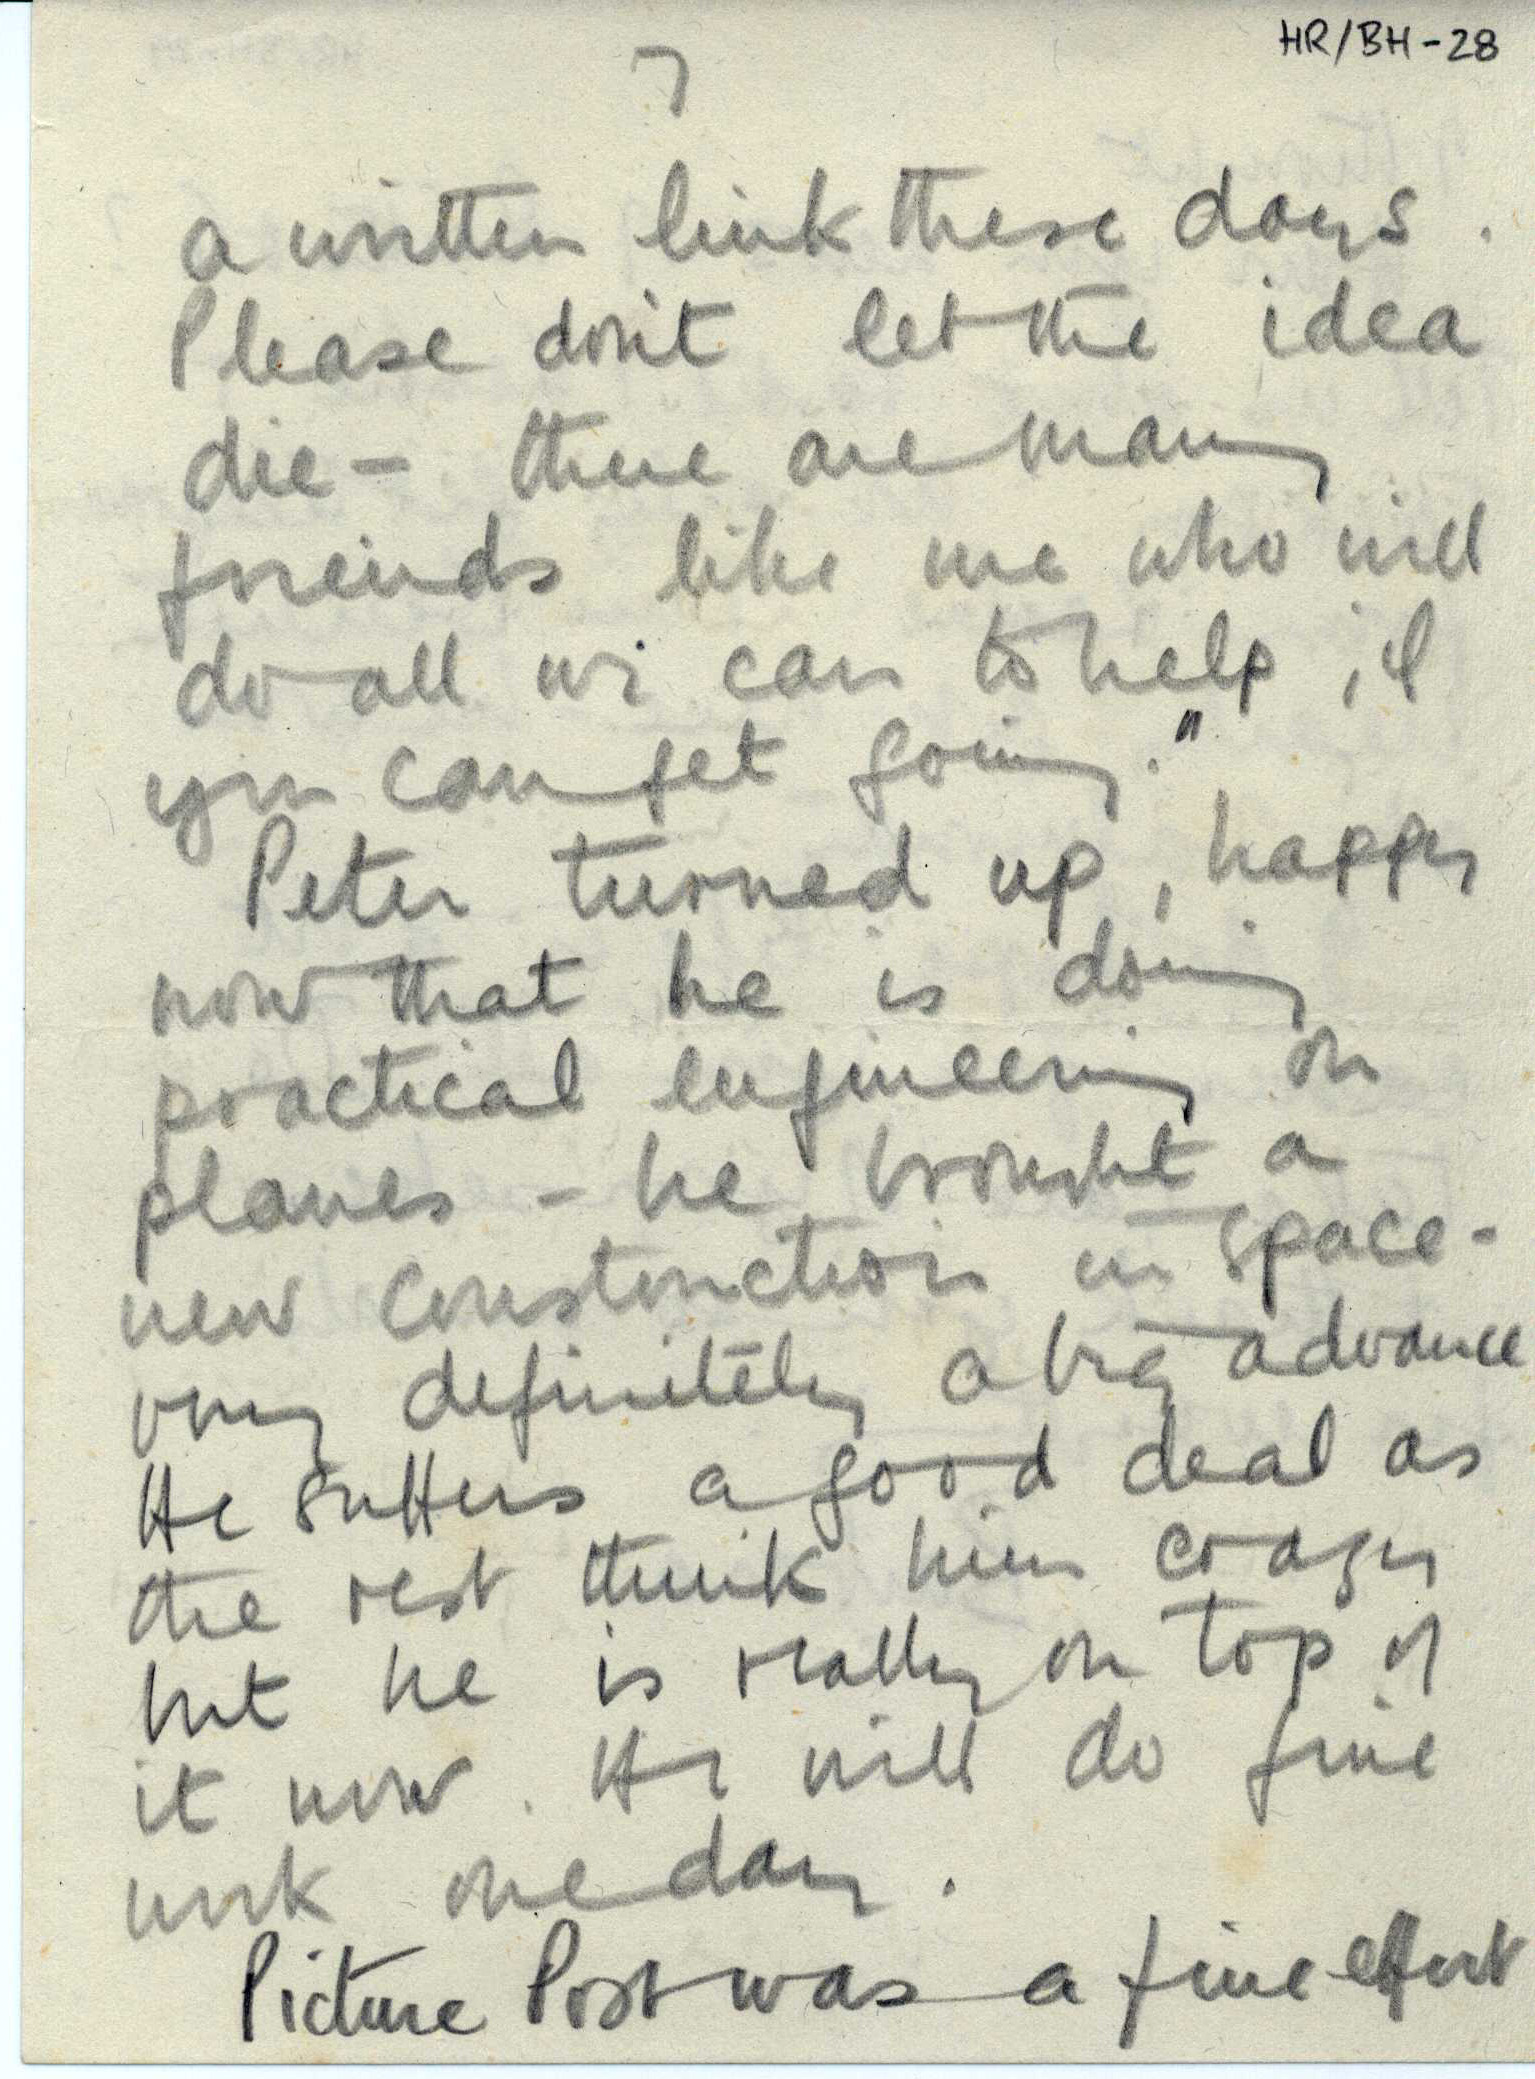 HR/BH-28
7
a written link these days.
Please don't let the idea
die - there are many
friends like me who will
do all we can to help, if
you can get going."
Peter turned up, happy
now that he is doing
practical engineering on
planes - he brought a
new construction in space -
very definitely a big advance
He suffers a good deal as
the rest think him crazy
but he is really on top of
it now. He will do fine
work one day.
Picture Post was a fine effort